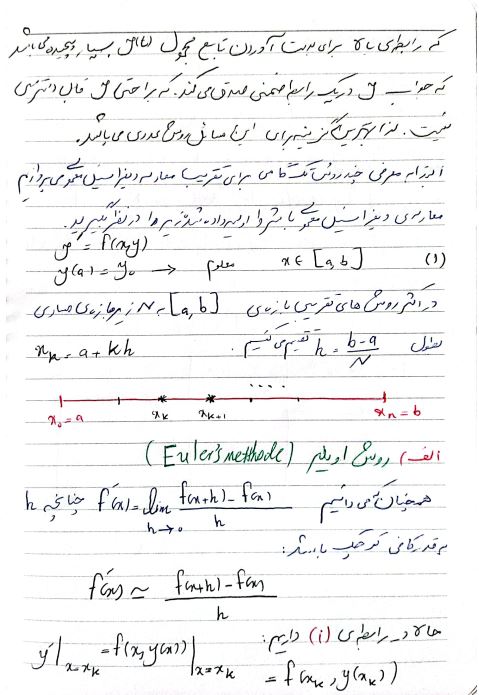 که رابطه‌ی بالا برای بدست آوردن تابع مجهول y(x) بسیار پیچیده می‌باشد
که جواب y در یک رابطه ضمنی صدق می‌کند. که براحتی y قابل دسترسی
نیست. لذا بهترین گزینه برای این مسائل روش عددی می‌باشد.
ابتدا به معرفی چند روش تک گامی برای تقریب معادله دیفرانسیل معمولی می‌پردازیم
معادله‌ی دیفرانسیل معمولی با شرط اولیه داده شده زیر را در نظر بگیرید.
y′ = f(x,y)
y(a) = y₀ → معلوم x ∈ [a, b] (1)
در اکثر روش های تقریبی بازه‌ی [a,b] به N زیربازه‌ی مساوی
بطول h = (b-a)/N تقسیم می‌کنیم. xₖ = a + kh
....
x₀ = a xₖ xₖ₊₁ xₙ = b
الف) روش اویلر (Euler's methode)
همچنان که می دانیم f′(x) = lim h→0 (f(x+h) - f(x))/h چنانچه h
به قدر کافی کوچک باشد:
f′(x) ≃ (f(x+h) - f(x))/h
حالا در رابطه‌ی (i) داریم:
y′|ₓ₌ₓₖ = f(x, y(x))|ₓ₌ₓₖ = f(xₖ, y(xₖ))